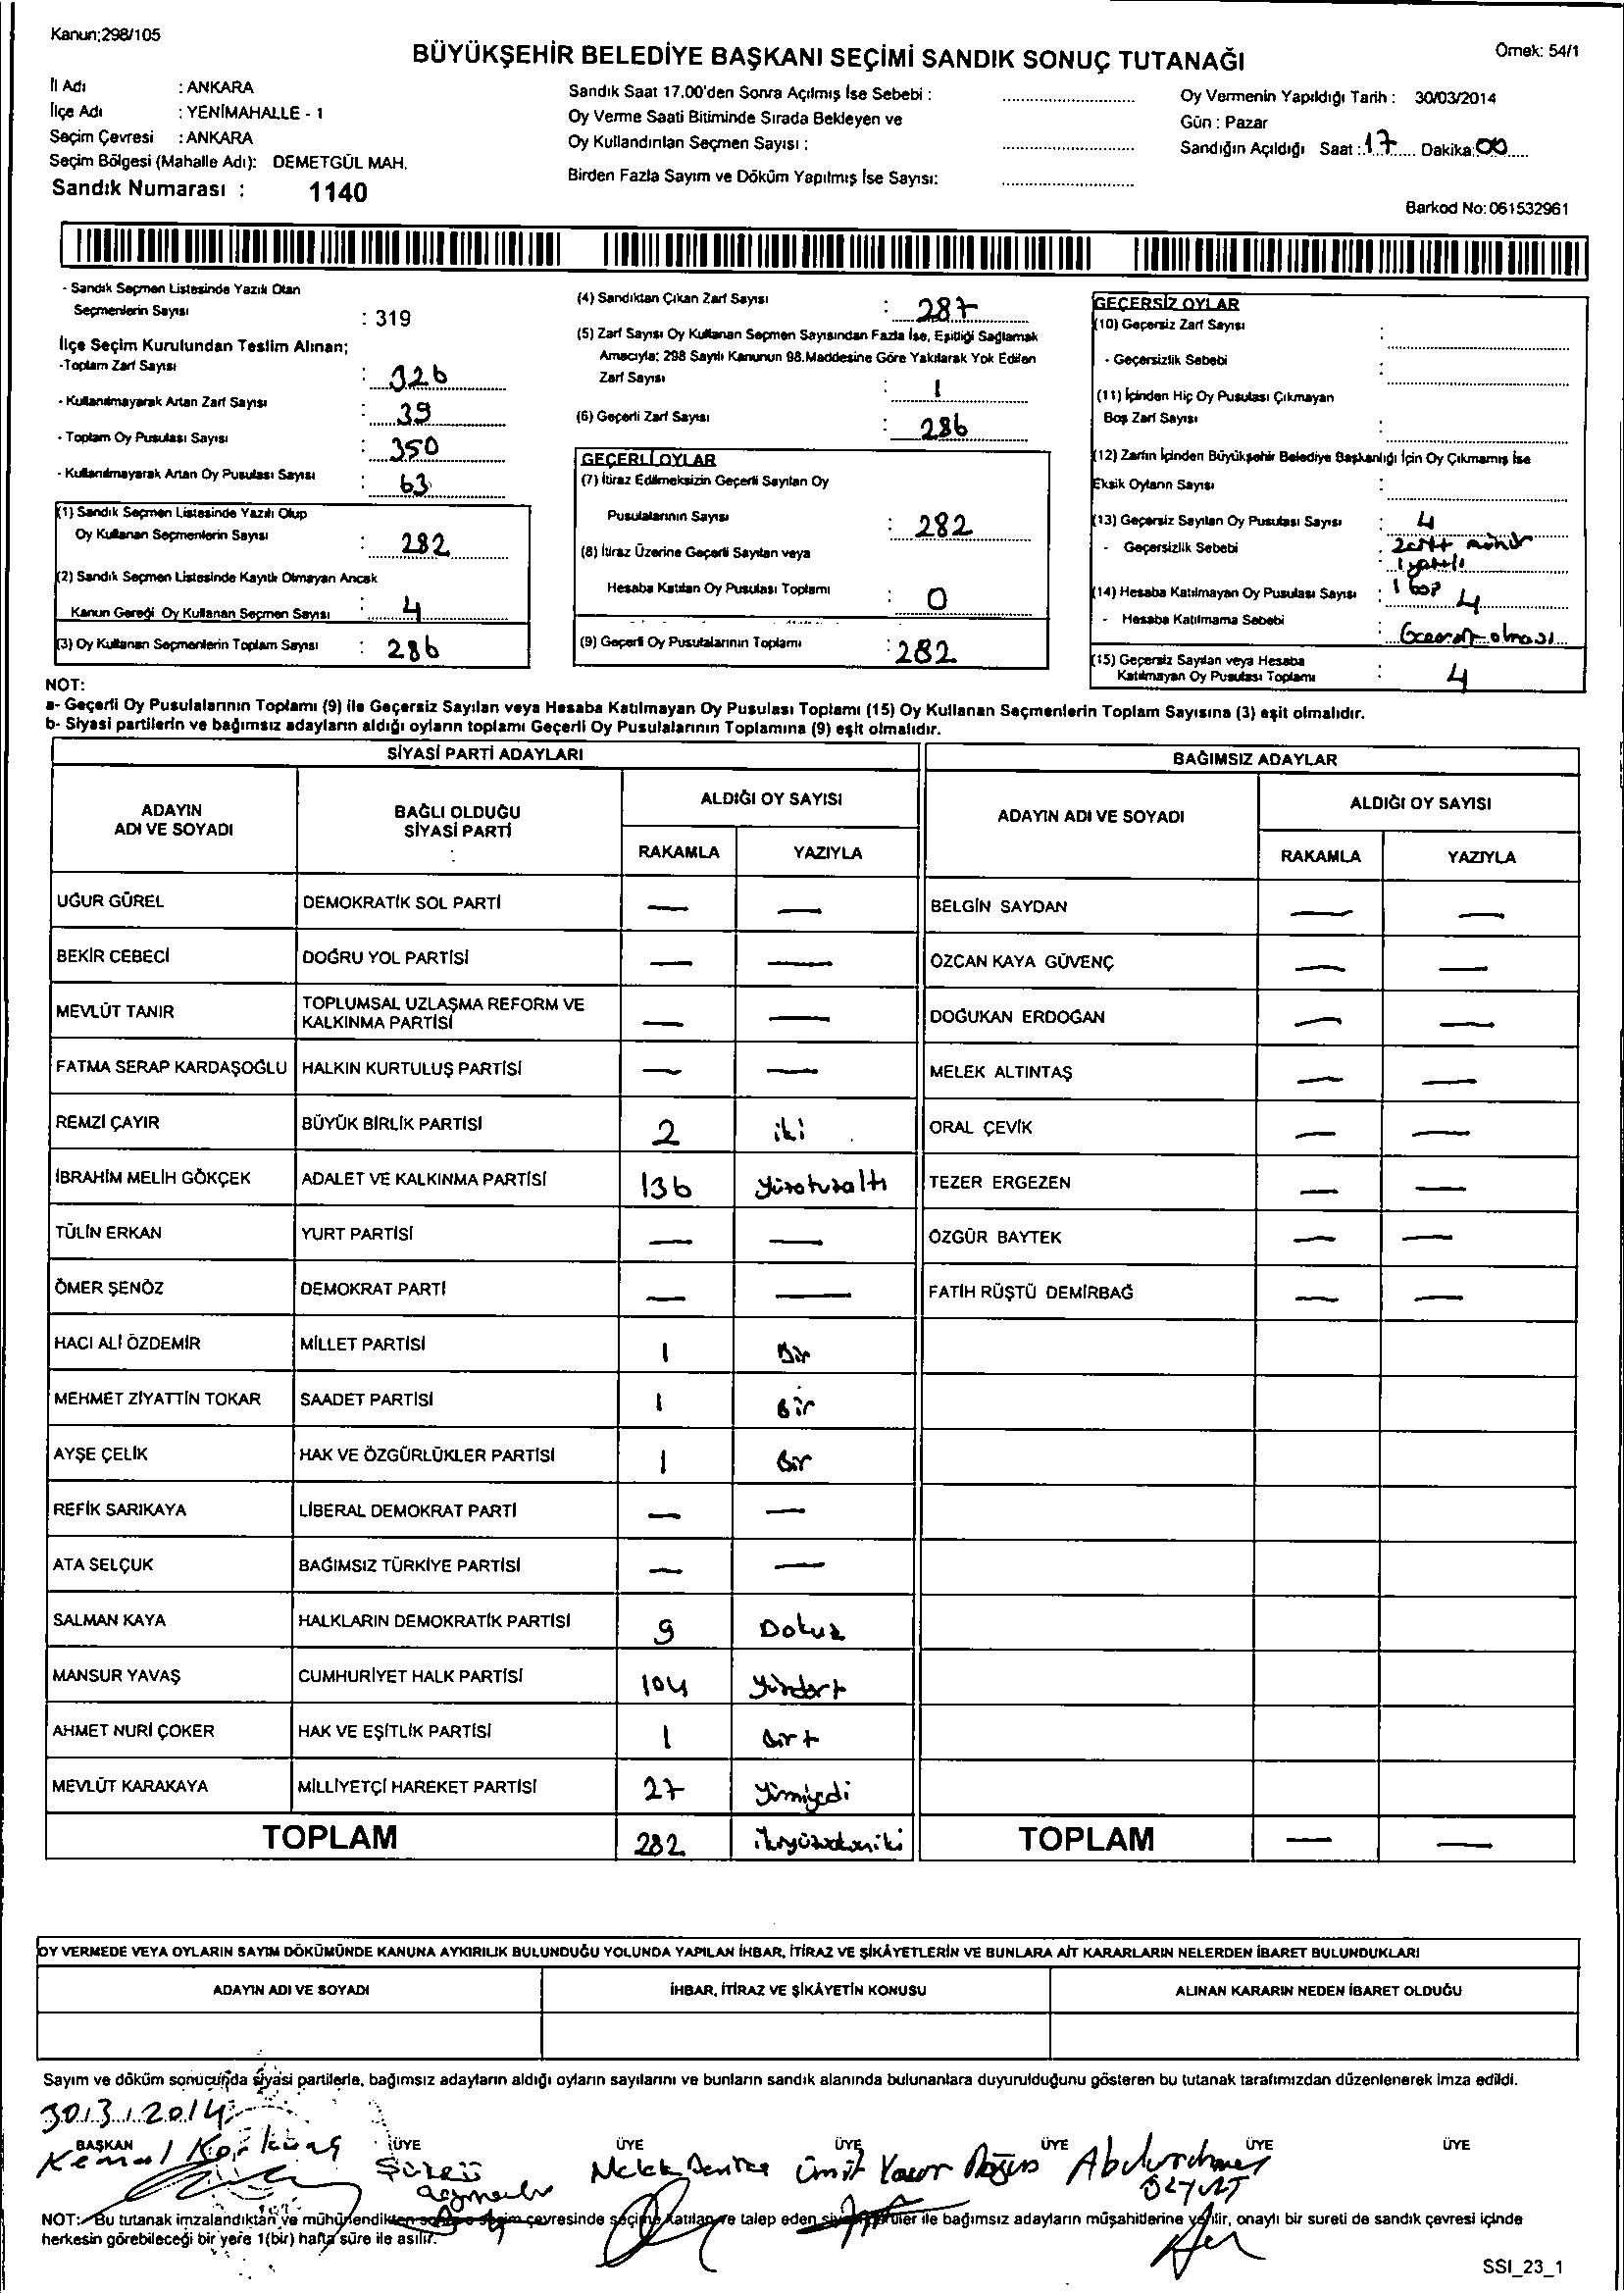 Kanun;298/105
Örnek: 54/1
BÜYÜKŞEHİR BELEDİYE BAŞKANI SEÇİMİ SANDIK SONUÇ TUTANAĞI
İl Adı : ANKARA
İlçe Adı : YENİMAHALLE - 1
Seçim Çevresi : ANKARA
Seçim Bölgesi (Mahalle Adı): DEMETGÜL MAH.
Sandık Numarası : 1140
Sandık Saat 17.00'den Sonra Açılmış İse Sebebi :
Oy Verme Saati Bitiminde Sırada Bekleyen ve
Oy Kullandırılan Seçmen Sayısı :
Birden Fazla Sayım ve Döküm Yapılmış İse Sayısı:
Oy Vermenin Yapıldığı Tarih : 30/03/2014
Gün : Pazar
Sandığın Açıldığı Saat : 17 Dakika: 00
Barkod No: 061532961
- Sandık Seçmen Listesinde Yazılı Olan
Seçmenlerin Sayısı : 319
İlçe Seçim Kurulundan Teslim Alınan;
-Toplam Zarf Sayısı : 326
- Kullanılmayarak Artan Zarf Sayısı : 39
- Toplam Oy Pusulası Sayısı : 350
- Kullanılmayarak Artan Oy Pusulası Sayısı : 63
(1) Sandık Seçmen Listesinde Yazılı Olup
Oy Kullanan Seçmenlerin Sayısı : 282
(2) Sandık Seçmen Listesinde Kayıtlı Olmayan Ancak
Kanun Gereği Oy Kullanan Seçmen Sayısı : 4
(3) Oy Kullanan Seçmenlerin Toplam Sayısı : 286
(4) Sandıktan Çıkan Zarf Sayısı : 287
(5) Zarf Sayısı Oy Kullanan Seçmen Sayısından Fazla İse, Eşitliği Sağlamak
Amacıyla; 298 Sayılı Kanunun 98.Maddesine Göre Yakılarak Yok Edilen
Zarf Sayısı : 1
(6) Geçerli Zarf Sayısı : 286
GEÇERLİ OYLAR
(7) İtiraz Edilmeksizin Geçerli Sayılan Oy
Pusulalarının Sayısı : 282
(8) İtiraz Üzerine Geçerli Sayılan veya
Hesaba Katılan Oy Pusulası Toplamı : 0
(9) Geçerli Oy Pusulalarının Toplamı : 282
GEÇERSİZ OYLAR
(10) Geçersiz Zarf Sayısı :
- Geçersizlik Sebebi :
(11) İçinden Hiç Oy Pusulası Çıkmayan
Boş Zarf Sayısı :
(12) Zarfın İçinden Büyükşehir Belediye Başkanlığı İçin Oy Çıkmamış İse
Eksik Oyların Sayısı :
(13) Geçersiz Sayılan Oy Pusulası Sayısı : 4
- Geçersizlik Sebebi :
(14) Hesaba Katılmayan Oy Pusulası Sayısı : 4
- Hesaba Katılmama Sebebi : olması
(15) Geçersiz Sayılan veya Hesaba
Katılmayan Oy Pusulası Toplamı : 4
NOT:
a- Geçerli Oy Pusulalarının Toplamı (9) ile Geçersiz Sayılan veya Hesaba Katılmayan Oy Pusulası Toplamı (15) Oy Kullanan Seçmenlerin Toplam Sayısına (3) eşit olmalıdır.
b- Siyasi partilerin ve bağımsız adayların aldığı oyların toplamı Geçerli Oy Pusulalarının Toplamına (9) eşit olmalıdır.
SİYASİ PARTİ ADAYLARI
ADAYIN ADI VE SOYADI BAĞLI OLDUĞU SİYASİ PARTİ ALDIĞI OY SAYISI RAKAMLA YAZIYLA
UĞUR GÜREL DEMOKRATİK SOL PARTİ — —
BEKİR CEBECİ DOĞRU YOL PARTİSİ — —
MEVLÜT TANIR TOPLUMSAL UZLAŞMA REFORM VE KALKINMA PARTİSİ — —
FATMA SERAP KARDAŞOĞLU HALKIN KURTULUŞ PARTİSİ — —
REMZİ ÇAYIR BÜYÜK BİRLİK PARTİSİ 2 iki
İBRAHİM MELİH GÖKÇEK ADALET VE KALKINMA PARTİSİ 136 yüzotuzaltı
TÜLİN ERKAN YURT PARTİSİ — —
ÖMER ŞENÖZ DEMOKRAT PARTİ — —
HACI ALİ ÖZDEMİR MİLLET PARTİSİ 1 Bir
MEHMET ZİYATTİN TOKAR SAADET PARTİSİ 1 Bir
AYŞE ÇELİK HAK VE ÖZGÜRLÜKLER PARTİSİ 1 Bir
REFİK SARIKAYA LİBERAL DEMOKRAT PARTİ — —
ATA SELÇUK BAĞIMSIZ TÜRKİYE PARTİSİ — —
SALMAN KAYA HALKLARIN DEMOKRATİK PARTİSİ 9 Dokuz
MANSUR YAVAŞ CUMHURİYET HALK PARTİSİ 104 Yüzdört
AHMET NURİ ÇOKER HAK VE EŞİTLİK PARTİSİ 1
MEVLÜT KARAKAYA MİLLİYETÇİ HAREKET PARTİSİ 27 Yirmiyedi
TOPLAM 282
BAĞIMSIZ ADAYLAR
ADAYIN ADI VE SOYADI ALDIĞI OY SAYISI RAKAMLA YAZIYLA
BELGİN SAYDAN — —
ÖZCAN KAYA GÜVENÇ — —
DOĞUKAN ERDOĞAN — —
MELEK ALTINTAŞ — —
ORAL ÇEVİK — —
TEZER ERGEZEN — —
ÖZGÜR BAYTEK — —
FATİH RÜŞTÜ DEMİRBAĞ — —
TOPLAM — —
OY VERMEDE VEYA OYLARIN SAYIM DÖKÜMÜNDE KANUNA AYKIRILIK BULUNDUĞU YOLUNDA YAPILAN İHBAR, İTİRAZ VE ŞİKÂYETLERİN VE BUNLARA AİT KARARLARIN NELERDEN İBARET BULUNDUKLARI
ADAYIN ADI VE SOYADI İHBAR, İTİRAZ VE ŞİKÂYETİN KONUSU ALINAN KARARIN NEDEN İBARET OLDUĞU
Sayım ve döküm sonucunda siyasi partilerle, bağımsız adayların aldığı oyların sayılarını ve bunların sandık alanında bulunanlara duyurulduğunu gösteren bu tutanak tarafımızdan düzenlenerek imza edildi.
30/3/2014
BAŞKAN ÜYE ÜYE ÜYE ÜYE ÜYE ÜYE
Kemal Melek Ümit
NOT: Bu tutanak imzalandıktan ve mühürlendikten seçim çevresinde seçime katılan ve talep eden ile bağımsız adayların müşahitlerine verilir, onaylı bir sureti de sandık çevresi içinde
herkesin görebileceği bir yere 1(bir) hafta süre ile asılır.
SSI_23_1